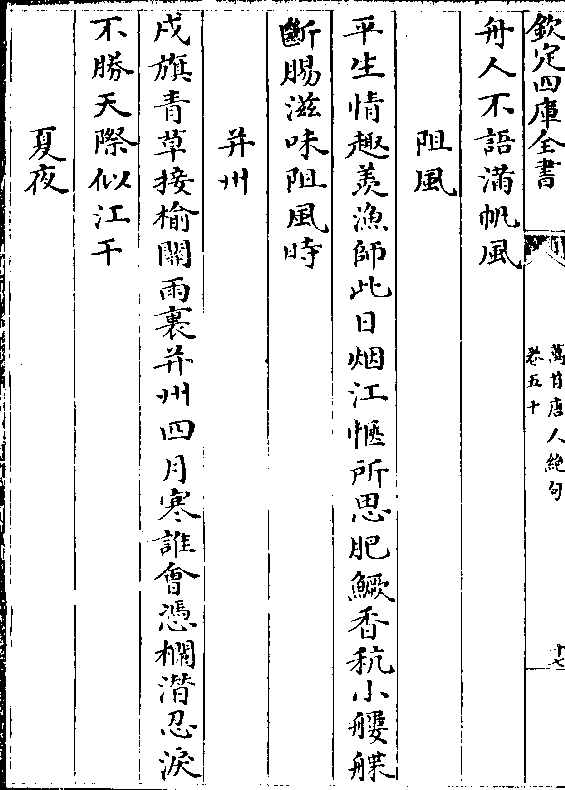 欽定四庫全書
萬首唐人絶句
卷五十
十七
舟人不語滿帆風
阻風
平生情趣羨漁師此日烟江愜所思肥鱖香秔小艛艓
斷腸滋味阻風時
并州
戍旗青草接榆關雨裏并州四月寒誰會憑欄潛忍淚
不勝天際似江干
夏夜